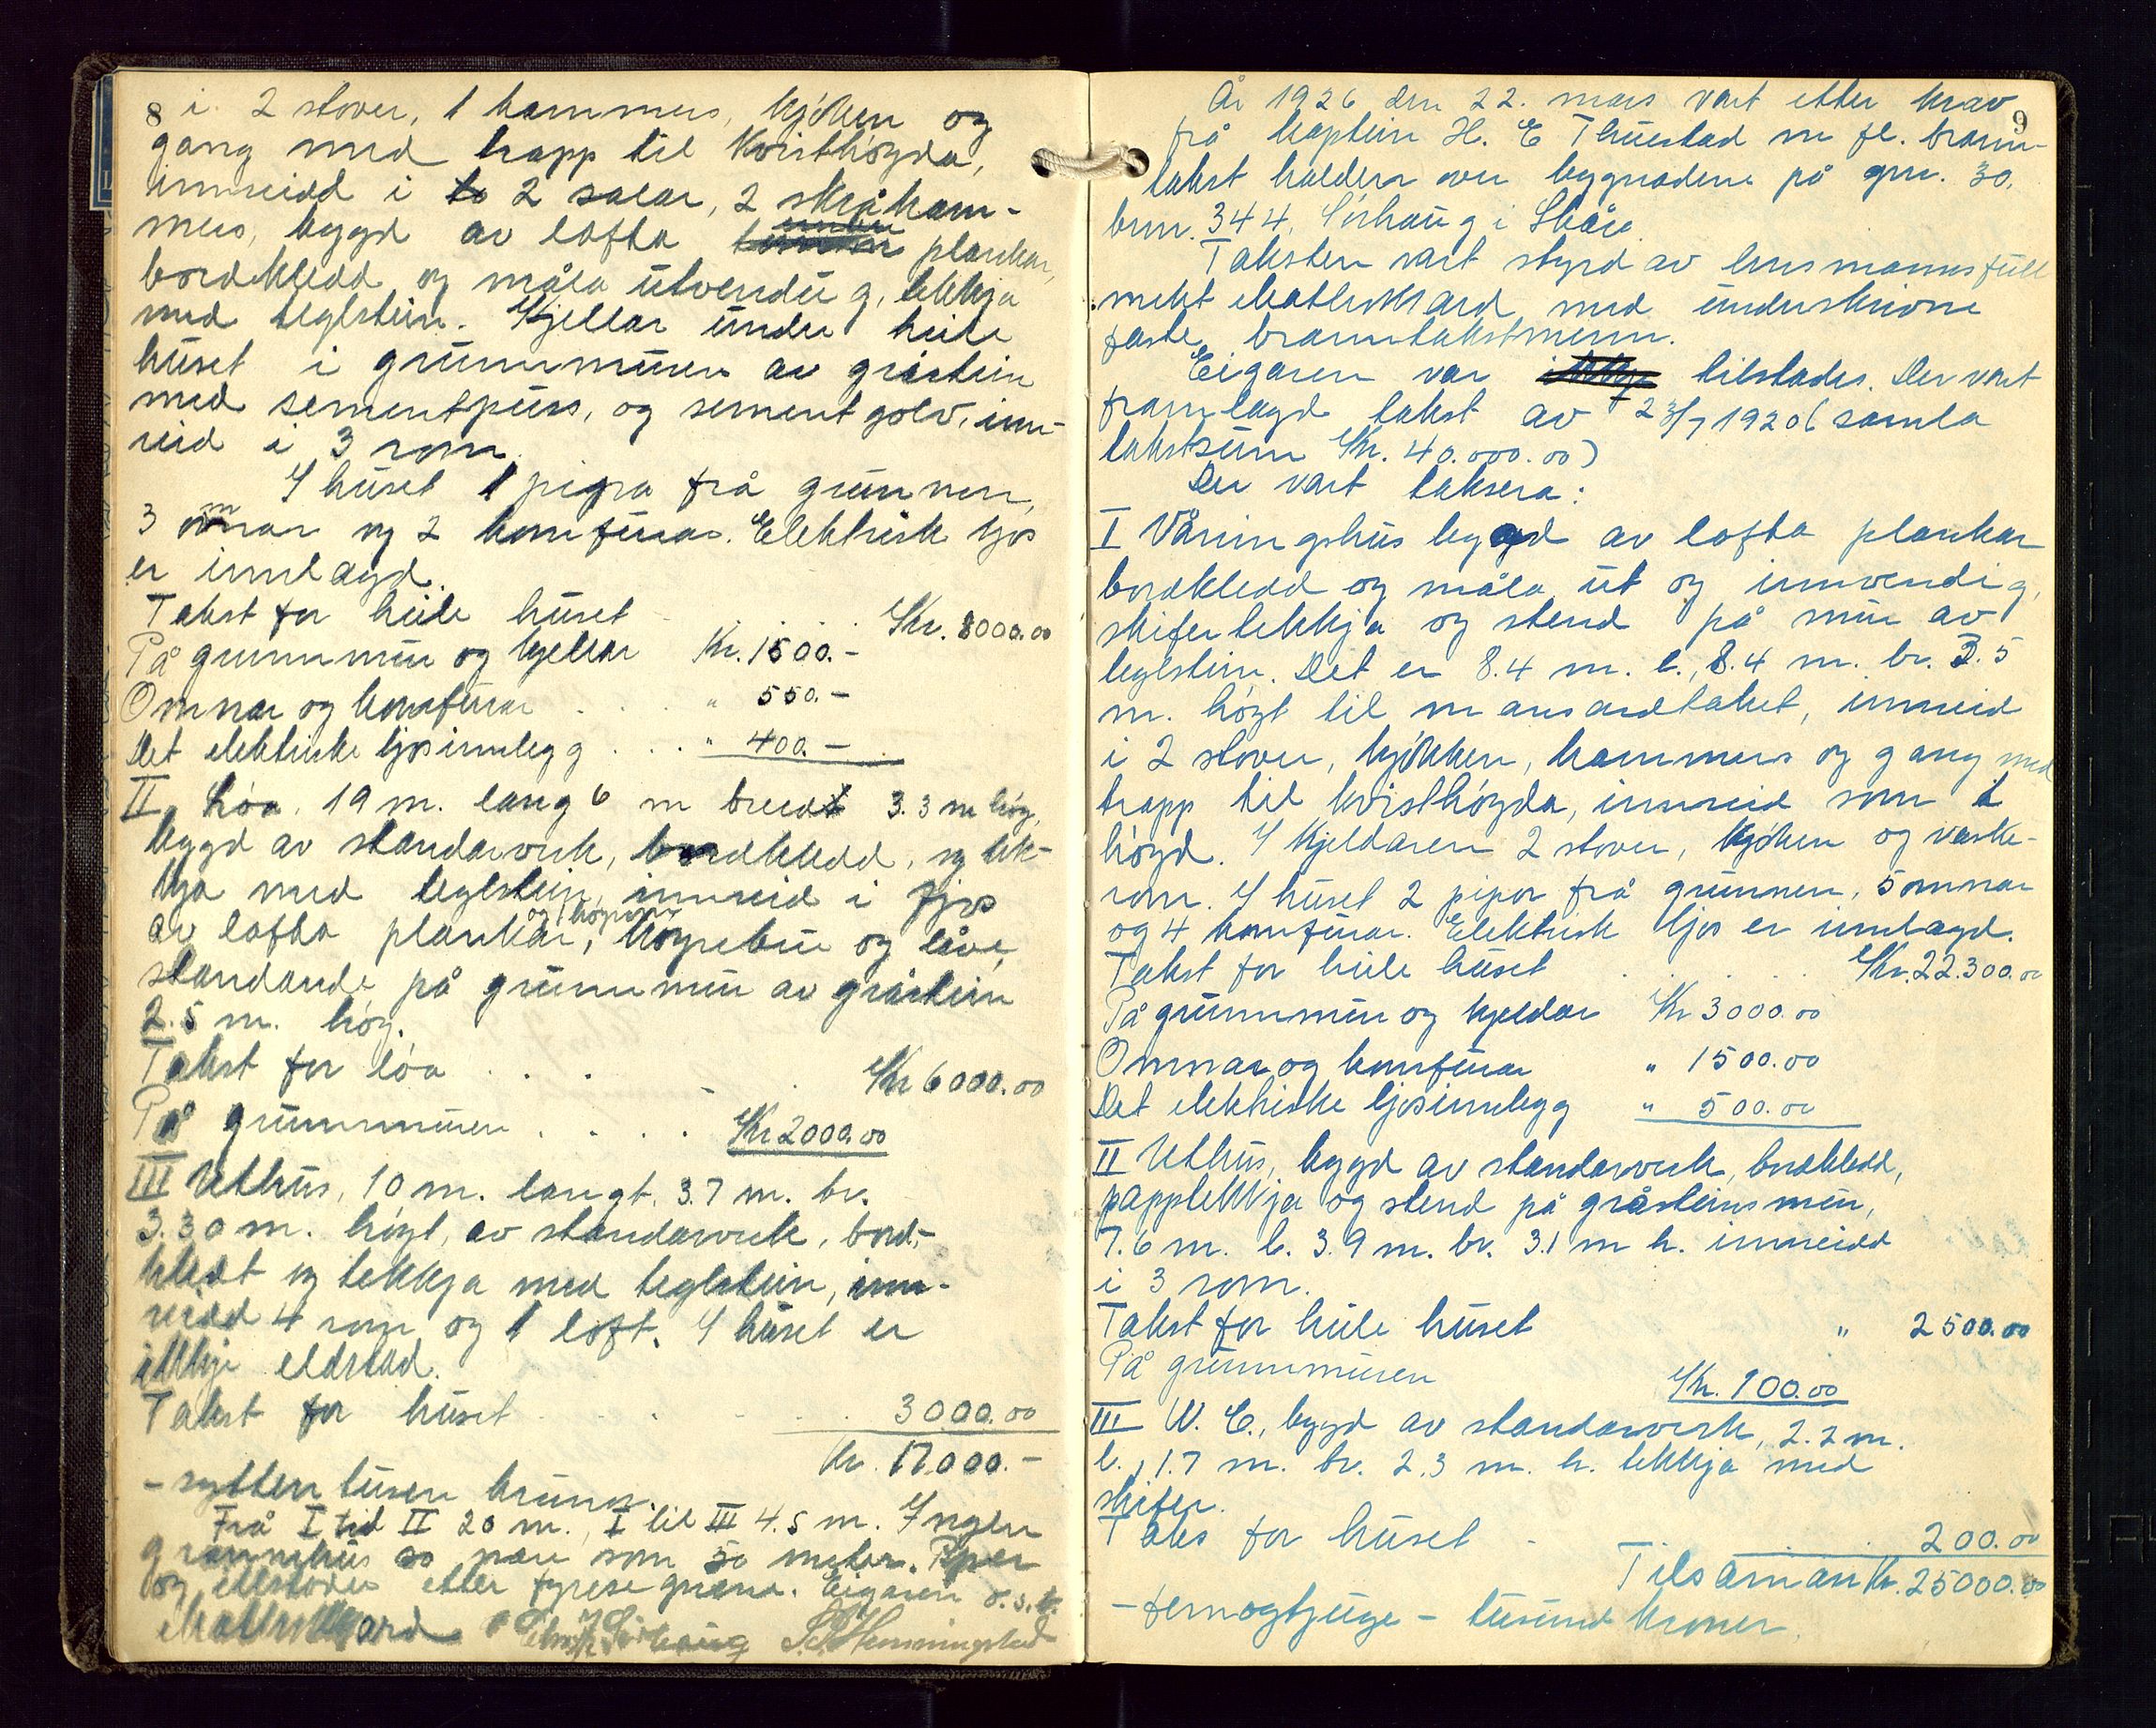 8
i 2 stover, 1 kammers, kjøken og
gang med trapp til kvisthøgda,
innreidd i to 2 salar, 2 skråkam-
mers, bygd av lafta plankar,
bordkledd og måla utvendug, tekkja
med teglstein. Kjellar under heile
huset i grunnmuren av gråstein
med sementpuss, og sement golv, inn-
reid i 3 rom.
I huset 1 pipa frå grunnen,
3 omnar og 2 komfurar. Elektrisk ljos
er innlagd.
Takst for heile huset . . . Kr. 8000.00
På grunnmur og kjellar Kr. 1500.-
Omnar og komfurar . . . " 550.-
Det elektriske ljosinnlegg . . . " 400.-
II Løa. 19 m. lang 6 m breid 3.3 m høg,
bygd av standarverk, bordkledd, og tek-
kja med teglstein, innreid i fjos
av lafta plankar, høgrebu og låve,
standande på grunnmur av gråstein
2.5 m. høg.
Takst for løa . . . . Kr 6000.00
På grunnmuren . . . . Kr 2000.00
III Uthus, 10 m. langt, 3.7 m. br.
3.30 m. høgt, av standarverk, bord-
kledt og tekkja med teglstein, inn-
reidd 4 rom og 1 loft. I huset er
ikkje eldstad.
Takst for huset . . . . 3000.00
Kr. 17000.-
- sytten tusen kronor.
Frå I til II 20 m., I til III 4.5 m. Ingen
grannehus so nære som 50 meter. Piper
og eldstader etter fyresegnene. Eigaren o.s.k.
S. Henningstad
9
År 1926 den 22. mars vart etter krav
frå kaptein H. E Thuestad m fl. brann-
takst halden over bygnadene på gnr. 30,
brnr. 344, Sørhaug i Skåre.
Taksten vart styrd av lensmannsfull
mekt med underskrivne
faste branntakstmenn.
Eigaren var ikkje tilstades. Der vart
framlagd takst av 23/7 1920 (samla
takstsum Kr. 40.000.00)
Der vart taksera:
I Våningshus bygd av lafta plankar
bordkledd og måla ut og innvendig,
skifertekkja og stend på mur av
teglstein. Det er 8.4 m. l., 8.4 m. br. 3.5
m. høgt til mansardtaket, innreid
i 2 stover, kjøkken, kammers og gang med
trapp til kvisthøgda, innreid som 1
høgd. I kjeldaren 2 stover, kjøken og vaske-
rom. I huset 2 pipor frå grunnen, 5 omnar
og 4 komfurar. Elektrisk ljos er innlagd.
Takst for heile huset . . . . . Kr. 22.300.00
På grunnmur og kjeldar Kr 3000.00
Omnar og komfurar " 1500.00
Det elektriske ljosinnlegg " 500.00
II Uthus, bygd av standarverk, bordkledd,
papptekkja og stend på gråsteinsmur,
7.6 m. l. 3.9 m. br. 3.1 m h. innreidd
i 3 rom.
Takst for heile huset " 2500.00
På grunnmuren Kr. 100.00
III W. C., bygd av standarverk, 2.2 m.
l., 1.7 m. br. 2.3 m. h. tekkja med
skifer.
Taks for huset . . 200.00
Tilsaman Kr. 25000.00
- femogtjuge - tusund kroner.